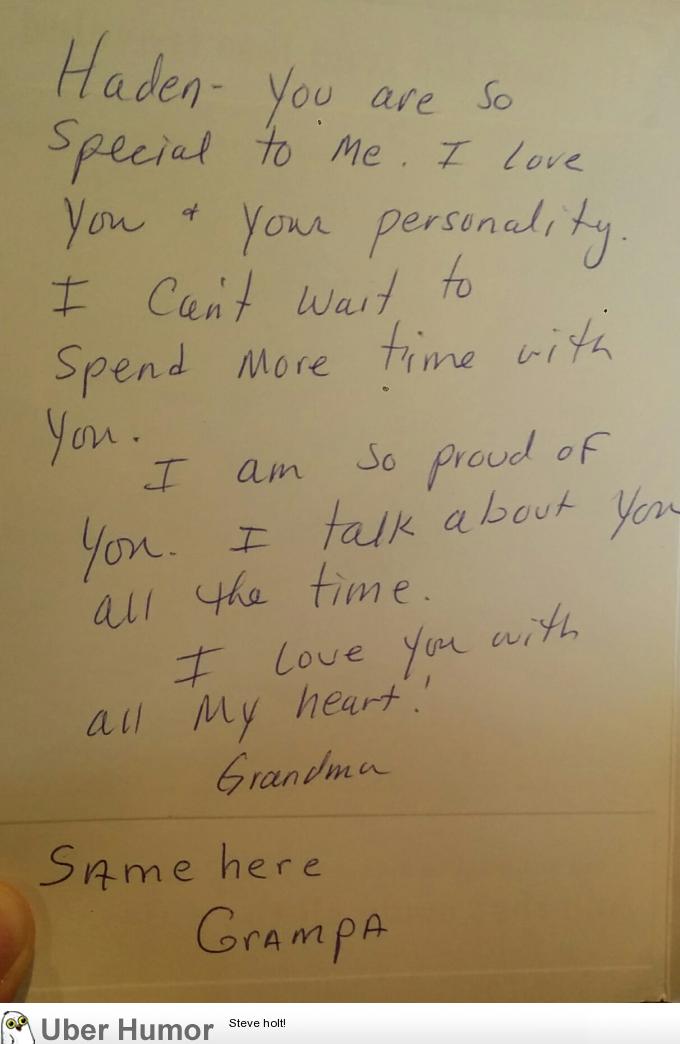 Haden- You are so
special to me. I love
you + your personality.
I can't wait to
spend more time with
you.
I am so proud of
you. I talk about you
all the time.
I love you with
all my heart!
Grandma
Same here
Grampa
Uber Humor
Steve holt!